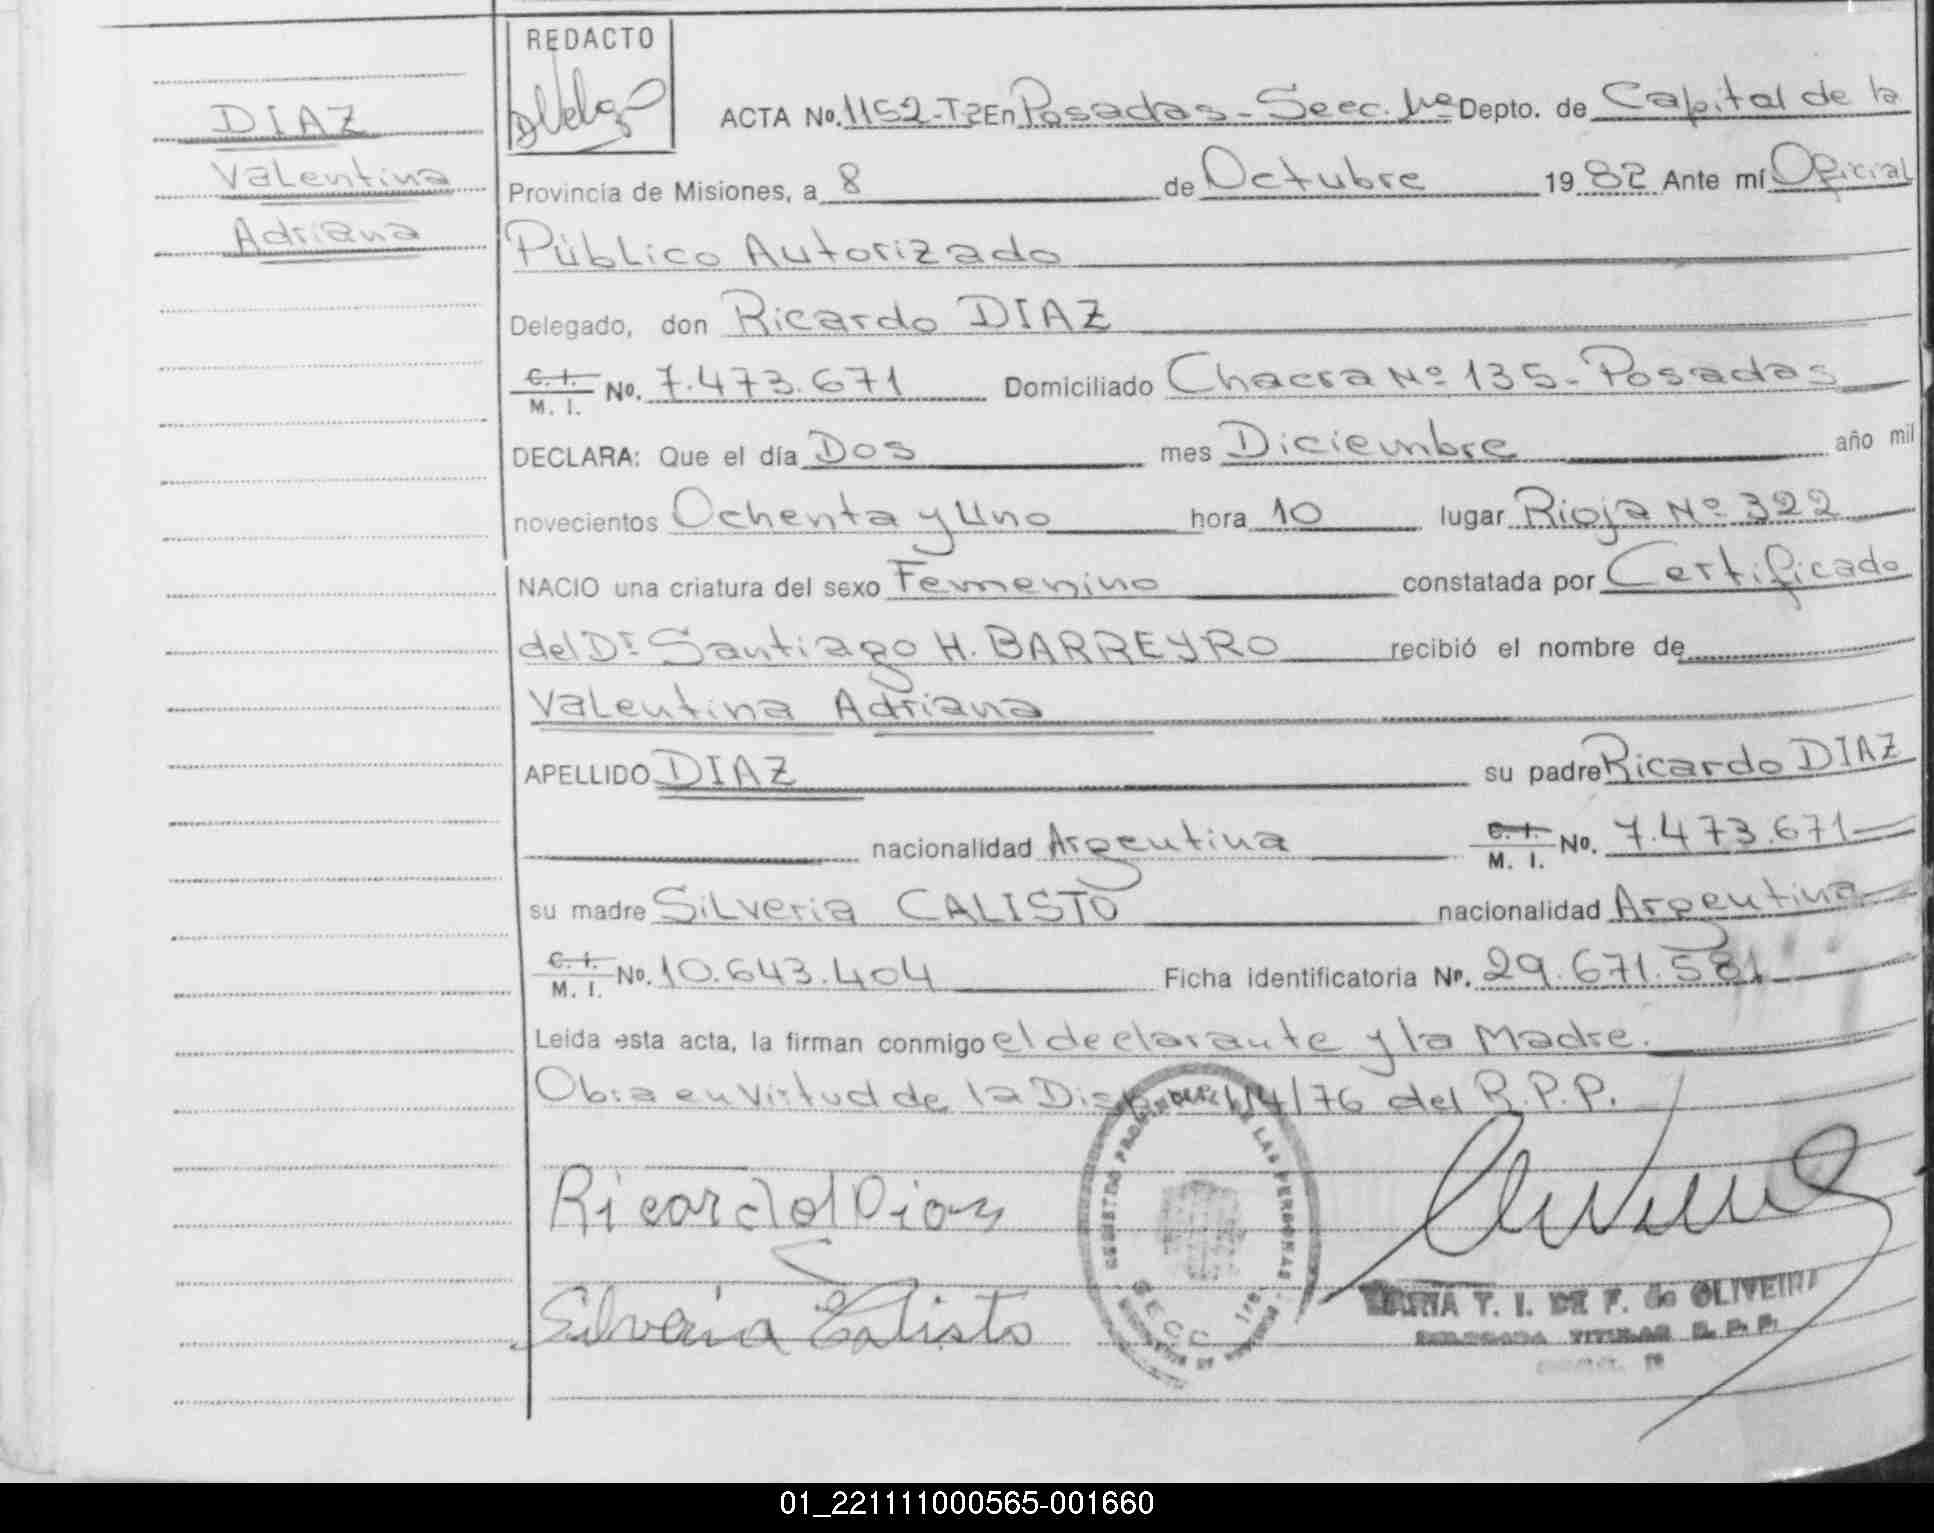 REDACTO
DIAZ
Valentina
Adriana
ACTA No. 1152-T2 En Posadas - Secc. 1ª Depto. de Capital de la
Provincia de Misiones, a 8 de Octubre 1982 Ante mí Oficial
Público Autorizado
Delegado, don Ricardo DIAZ
C. I. M. I. No. 7.473.671 Domiciliado Chacra Nº 135 - Posadas
DECLARA: Que el día Dos mes Diciembre año mil
novecientos Ochenta y Uno hora 10 lugar Rioja Nº 322
NACIO una criatura del sexo Femenino constatada por Certificado
del Dr Santiago H. BARREYRO recibió el nombre de
Valentina Adriana
APELLIDO DIAZ su padre Ricardo DIAZ
nacionalidad Argentina C. I. M. I. No. 7.473.671
su madre Silveria CALISTO nacionalidad Argentina
C. I. M. I. No. 10.643.404 Ficha identificatoria No. 29.671.581
Leida esta acta, la firman conmigo el declarante y la Madre.
Obra en virtud de la Disp. 14/76 del R.P.P.
Ricardo Diaz
Silveria Calisto
REGISTRO PROVINCIAL DE LAS PERSONAS
SECC 1ra
T. I. DE F. de OLIVEIRA
DELEGADA TITULAR R. P. P.
01_221111000565-001660